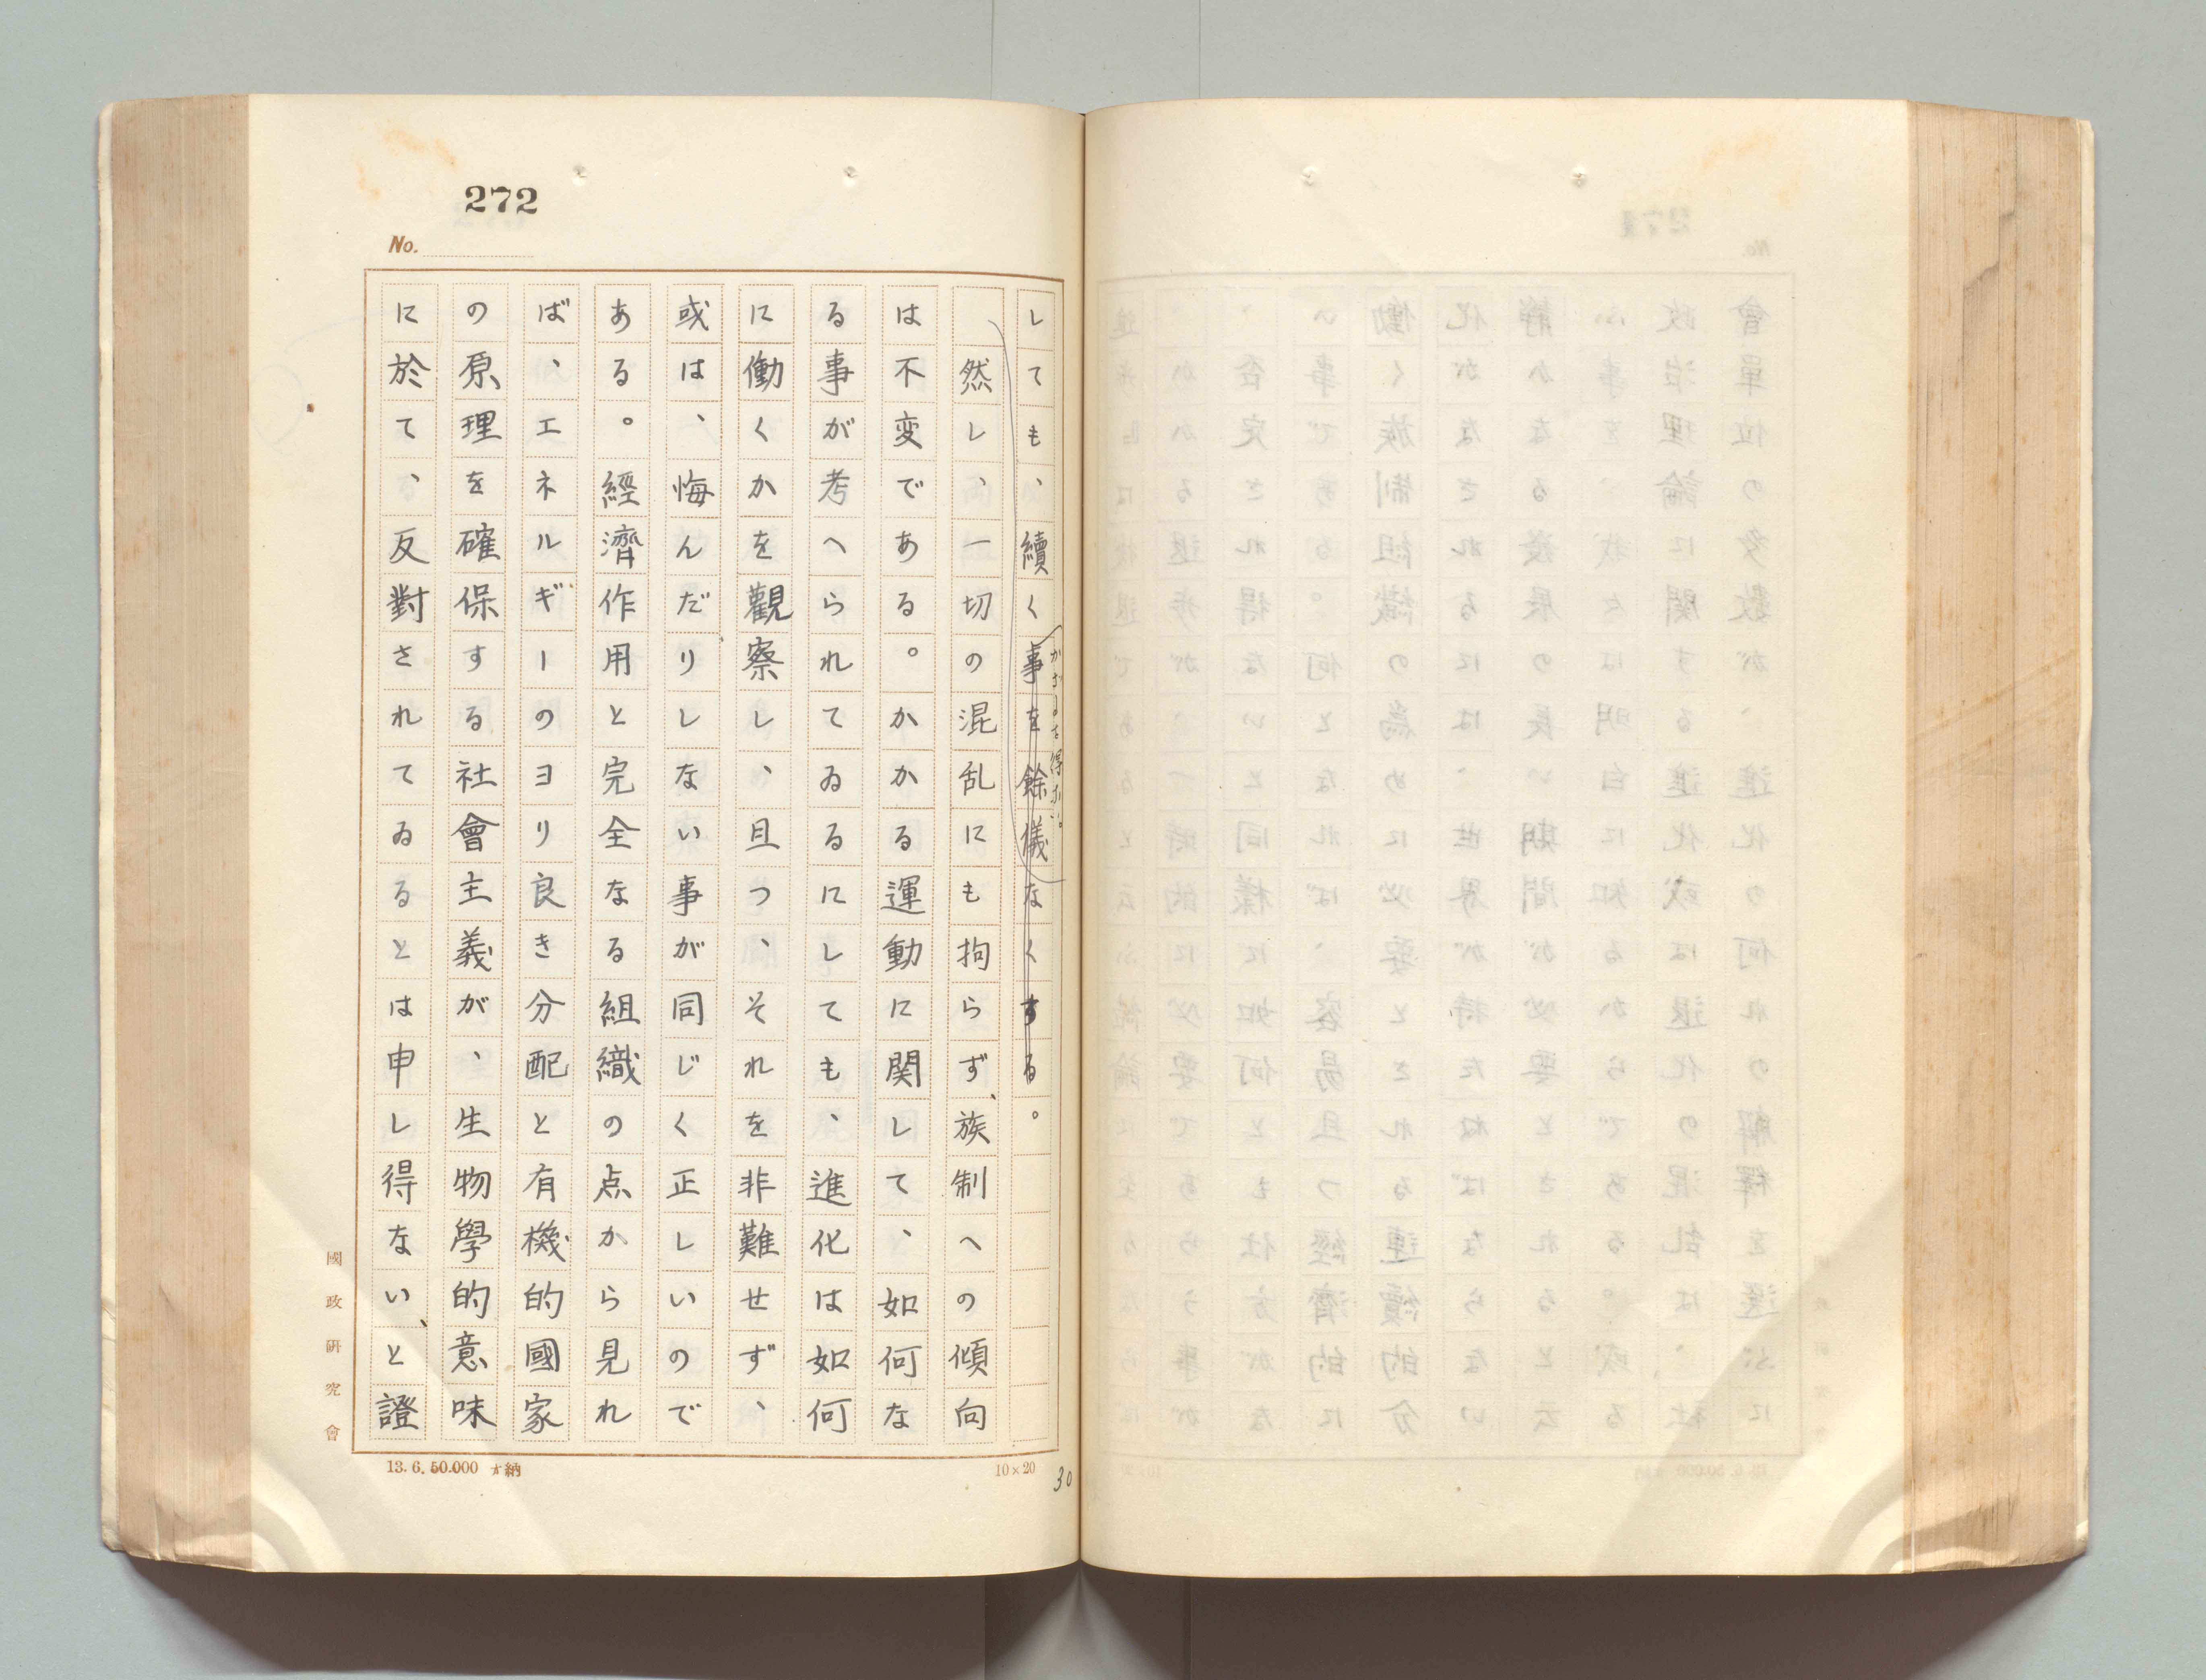 272
No.
しても、續く事を餘儀なくする。
然し、一切の混乱にも拘らず、族制への傾向
は不変である。かかる運動に関して、如何な
る事が考へられてゐるにしても、進化は如何
に働くかを觀察し、且つ、それを非難せず、
或は、悔んだりしない事が同じく正しいので
ある。經濟作用と完全なる組織の点から見れ
ば、エネルギーのヨリ良き分配と有機的國家
の原理を確保する社會主義が、生物學的意味
に於て、反對されてゐるとは申し得ない、と證
國政研究會
13.6.50.000 納
10×20
30